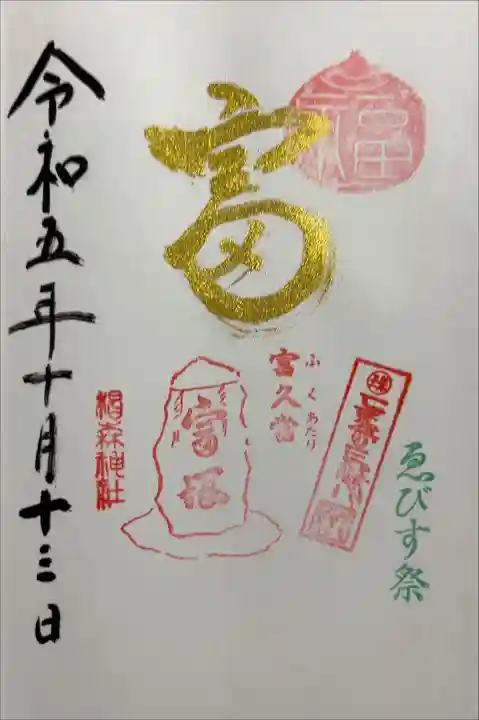 福
富
ゑびす祭
富久當
ふくあたり
富塚
椙森神社
令和五年十月十三日